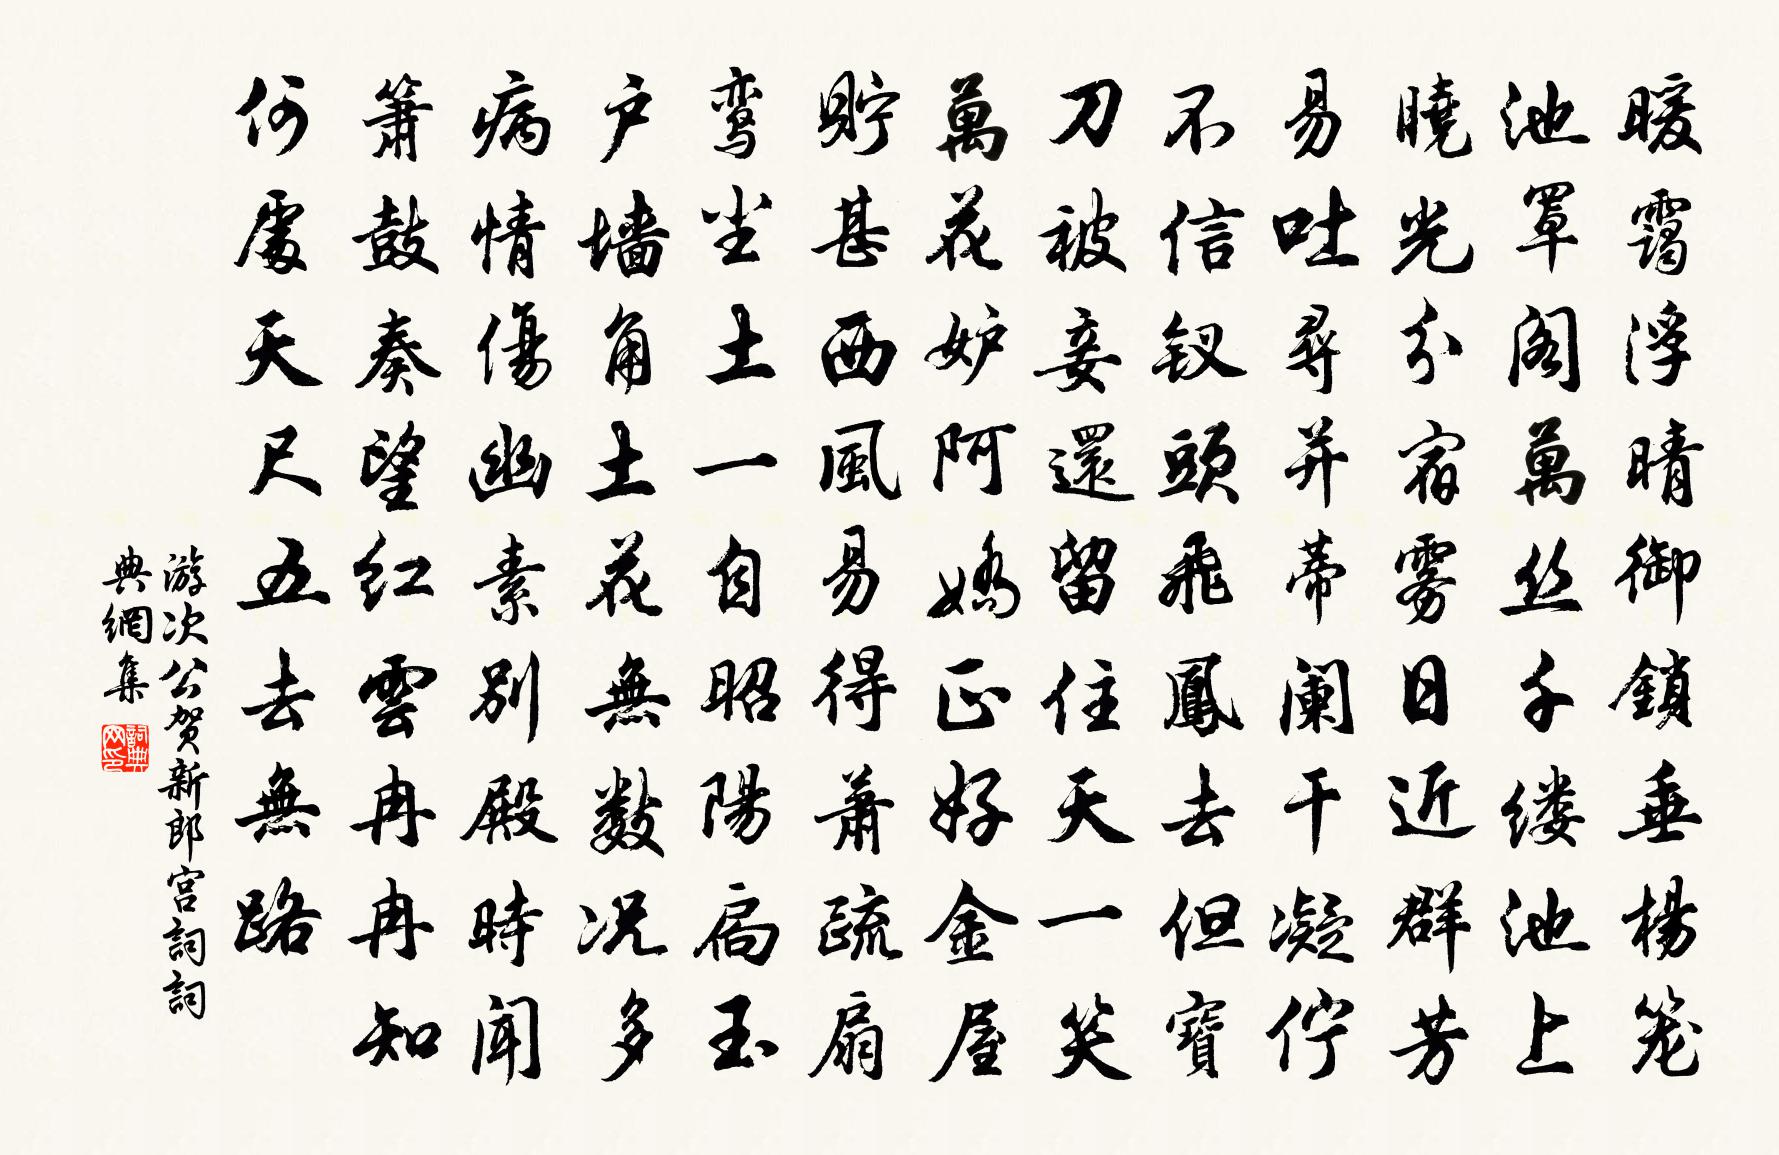 暖靄浮晴御鎖垂楊笼
池罩阁萬丝千缕池上
曉光分宿雾日近群芳
易吐尋并蒂阑干凝佇
不信钗頭飛鳳去但寶
刀被妾還留住天一笑
萬花妒阿嬌正好金屋
貯甚西風易得蕭疏扇
鸾尘土一自昭陽扃玉
户墙角土花無数况多
病情傷幽素别殿時聞
箫鼓奏望红雲冉冉知
何處天尺五去無路
游次公贺新郎宫詞詞
典網集
詞典网印